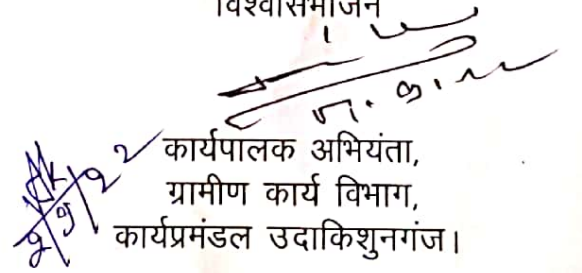 विश्वासभाजन
कार्यपालक अभियंता,
ग्रामीण कार्य विभाग,
कार्यप्रमंडल उदाकिशुनगंज।